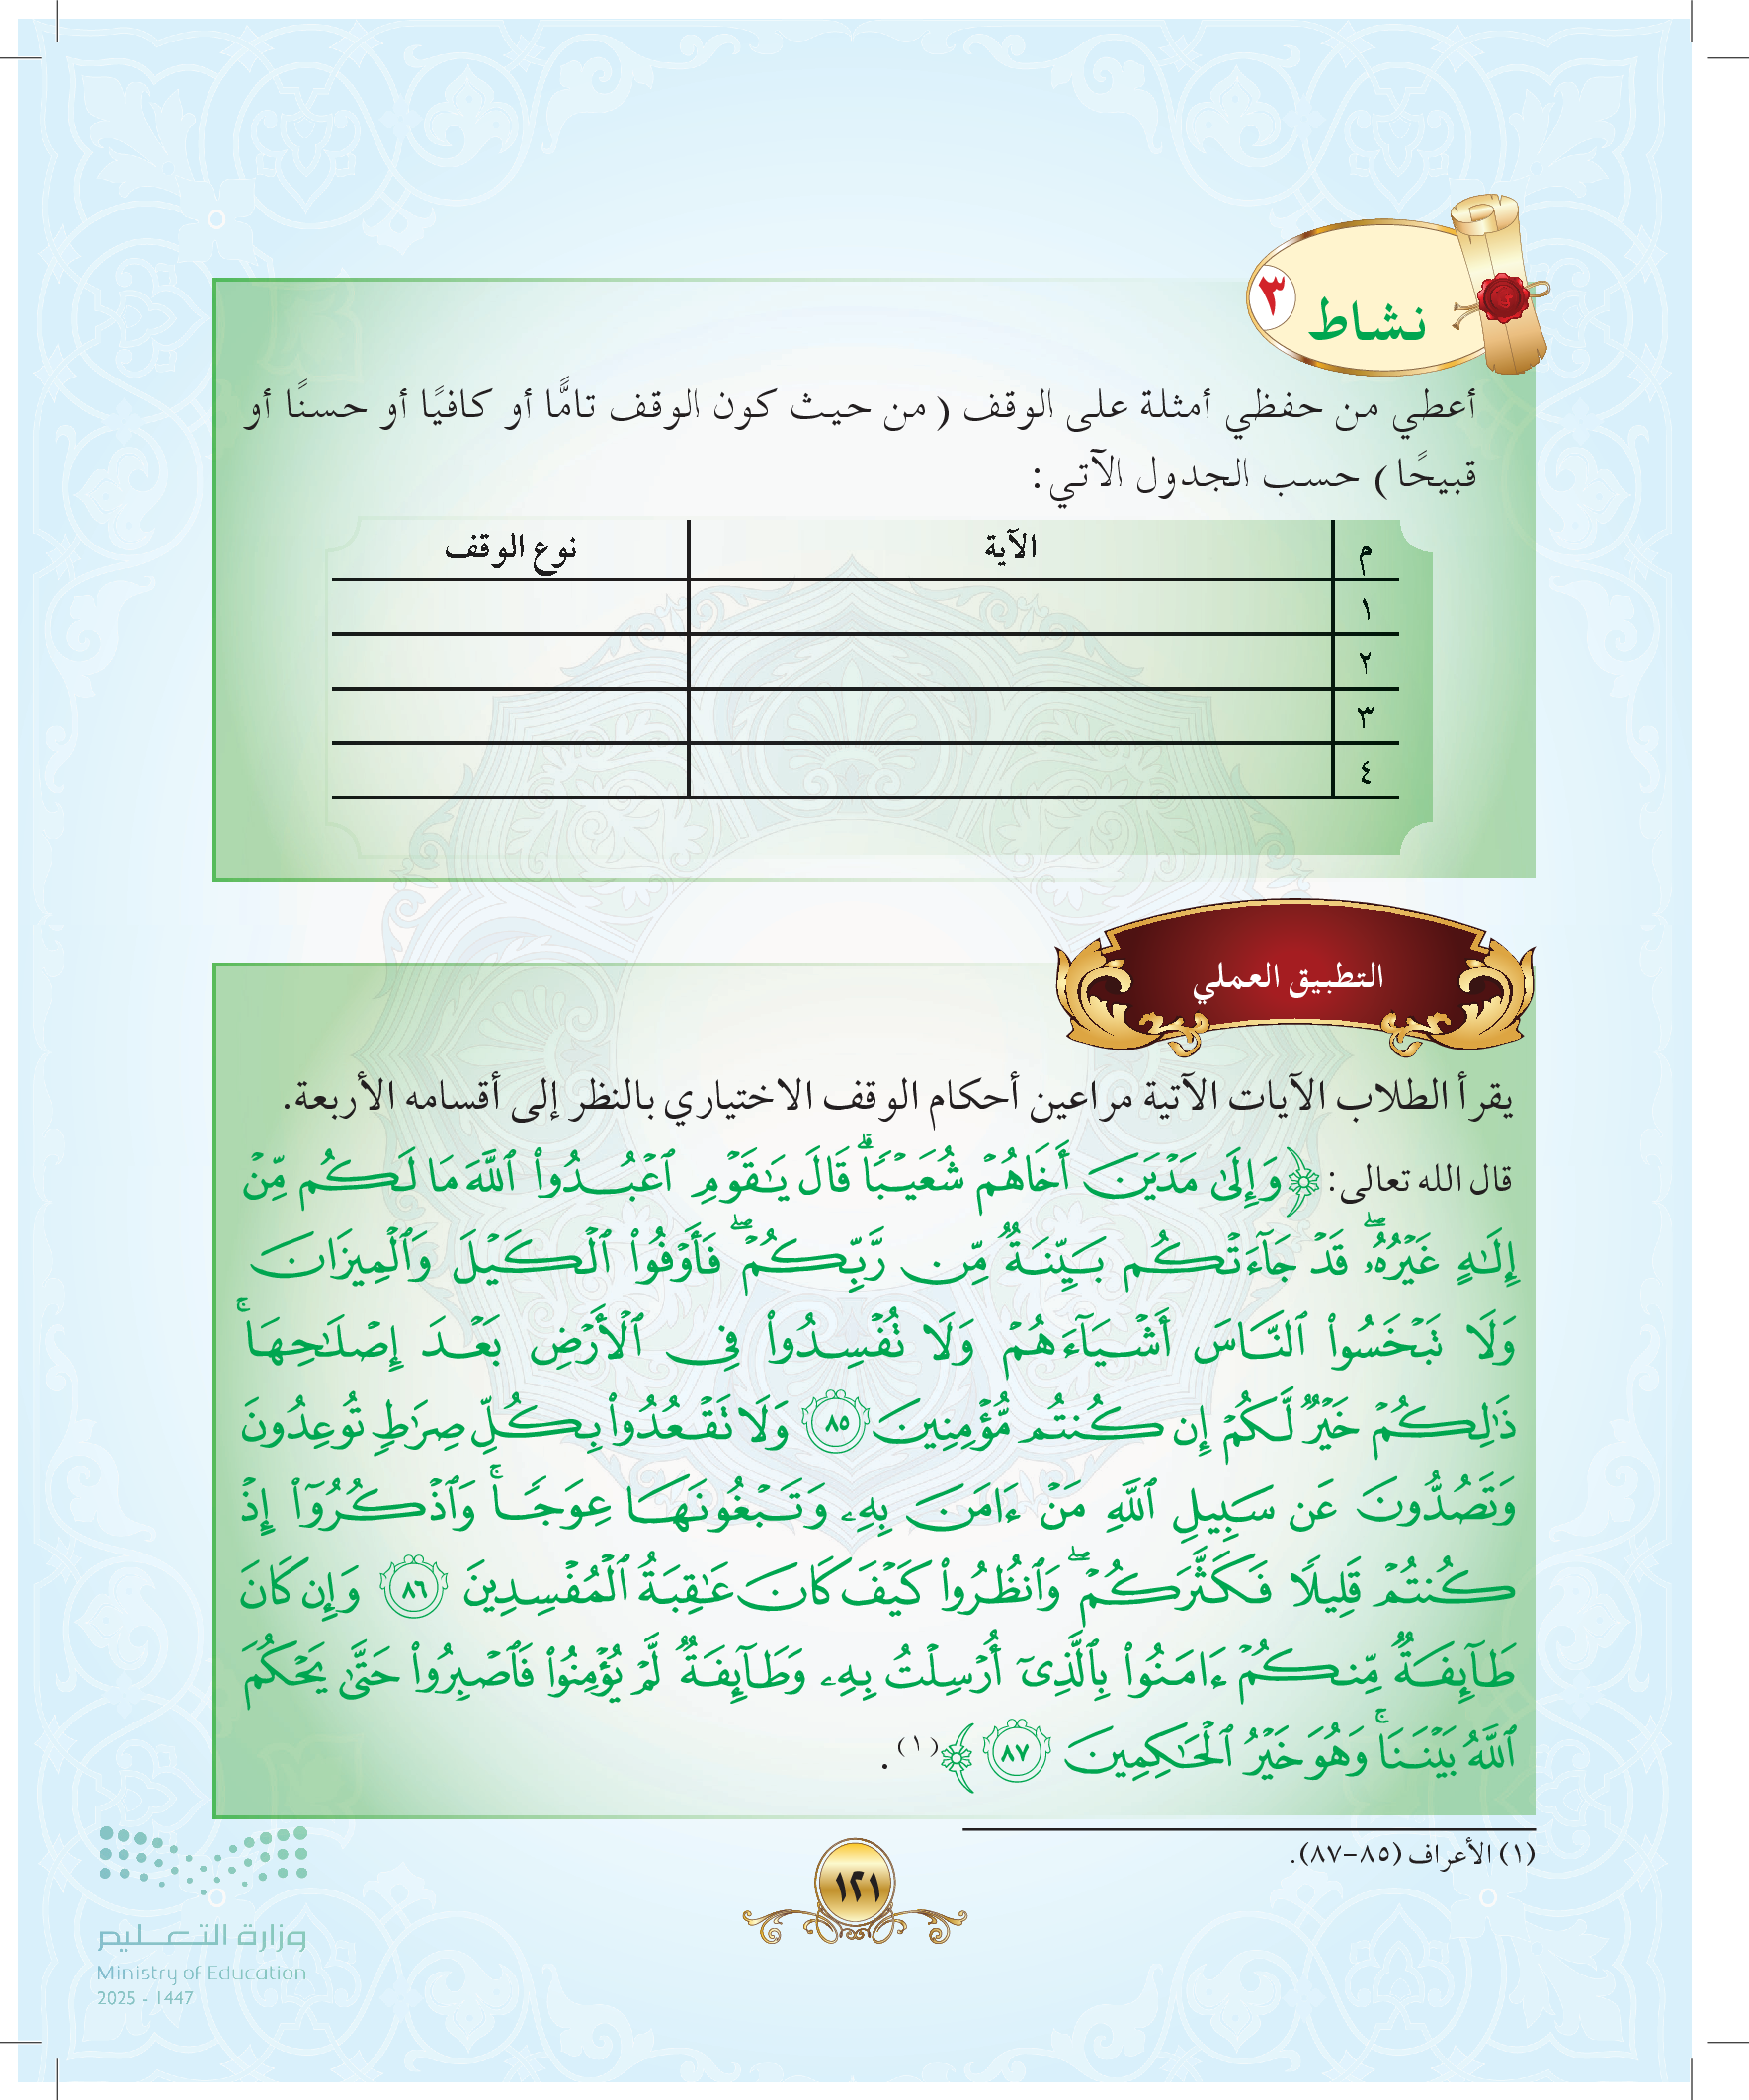 نشاط ٣
أعطي من حفظي أمثلة على الوقف ( من حيث كون الوقف تامًّا أو كافيًا أو حسنًا أو
قبيحًا ) حسب الجدول الآتي:
م الآية نوع الوقف
١
٢
٣
٤
التطبيق العملي
يقرأ الطلاب الآيات الآتية مراعين أحكام الوقف الاختياري بالنظر إلى أقسامه الأربعة.
قال الله تعالى: ﴿وَإِلَىٰ مَدْيَنَ أَخَاهُمْ شُعَيْبًاۗ قَالَ يَـٰقَوْمِ ٱعْبُدُوا۟ ٱللَّهَ مَا لَكُم مِّنْ
إِلَـٰهٍ غَيْرُهُۥۖ قَدْ جَآءَتْكُم بَيِّنَةٌ مِّن رَّبِّكُمْۖ فَأَوْفُوا۟ ٱلْكَيْلَ وَٱلْمِيزَانَ
وَلَا تَبْخَسُوا۟ ٱلنَّاسَ أَشْيَآءَهُمْ وَلَا تُفْسِدُوا۟ فِى ٱلْأَرْضِ بَعْدَ إِصْلَـٰحِهَاۚ
ذَٰلِكُمْ خَيْرٌ لَّكُمْ إِن كُنتُم مُّؤْمِنِينَ ٨٥ وَلَا تَقْعُدُوا۟ بِكُلِّ صِرَٰطٍ تُوعِدُونَ
وَتَصُدُّونَ عَن سَبِيلِ ٱللَّهِ مَنْ ءَامَنَ بِهِۦ وَتَبْغُونَهَا عِوَجًاۚ وَٱذْكُرُوٓا۟ إِذْ
كُنتُمْ قَلِيلًا فَكَثَّرَكُمْۖ وَٱنظُرُوا۟ كَيْفَ كَانَ عَـٰقِبَةُ ٱلْمُفْسِدِينَ ٨٦ وَإِن كَانَ
طَآئِفَةٌ مِّنكُمْ ءَامَنُوا۟ بِٱلَّذِىٓ أُرْسِلْتُ بِهِۦ وَطَآئِفَةٌ لَّمْ يُؤْمِنُوا۟ فَٱصْبِرُوا۟ حَتَّىٰ يَحْكُمَ
ٱللَّهُ بَيْنَنَاۚ وَهُوَ خَيْرُ ٱلْحَـٰكِمِينَ ٨٧﴾(١).
(١) الأعراف (٨٥-٨٧).
١٢١
وزارة التعليم
Ministry of Education
2025 - 1447